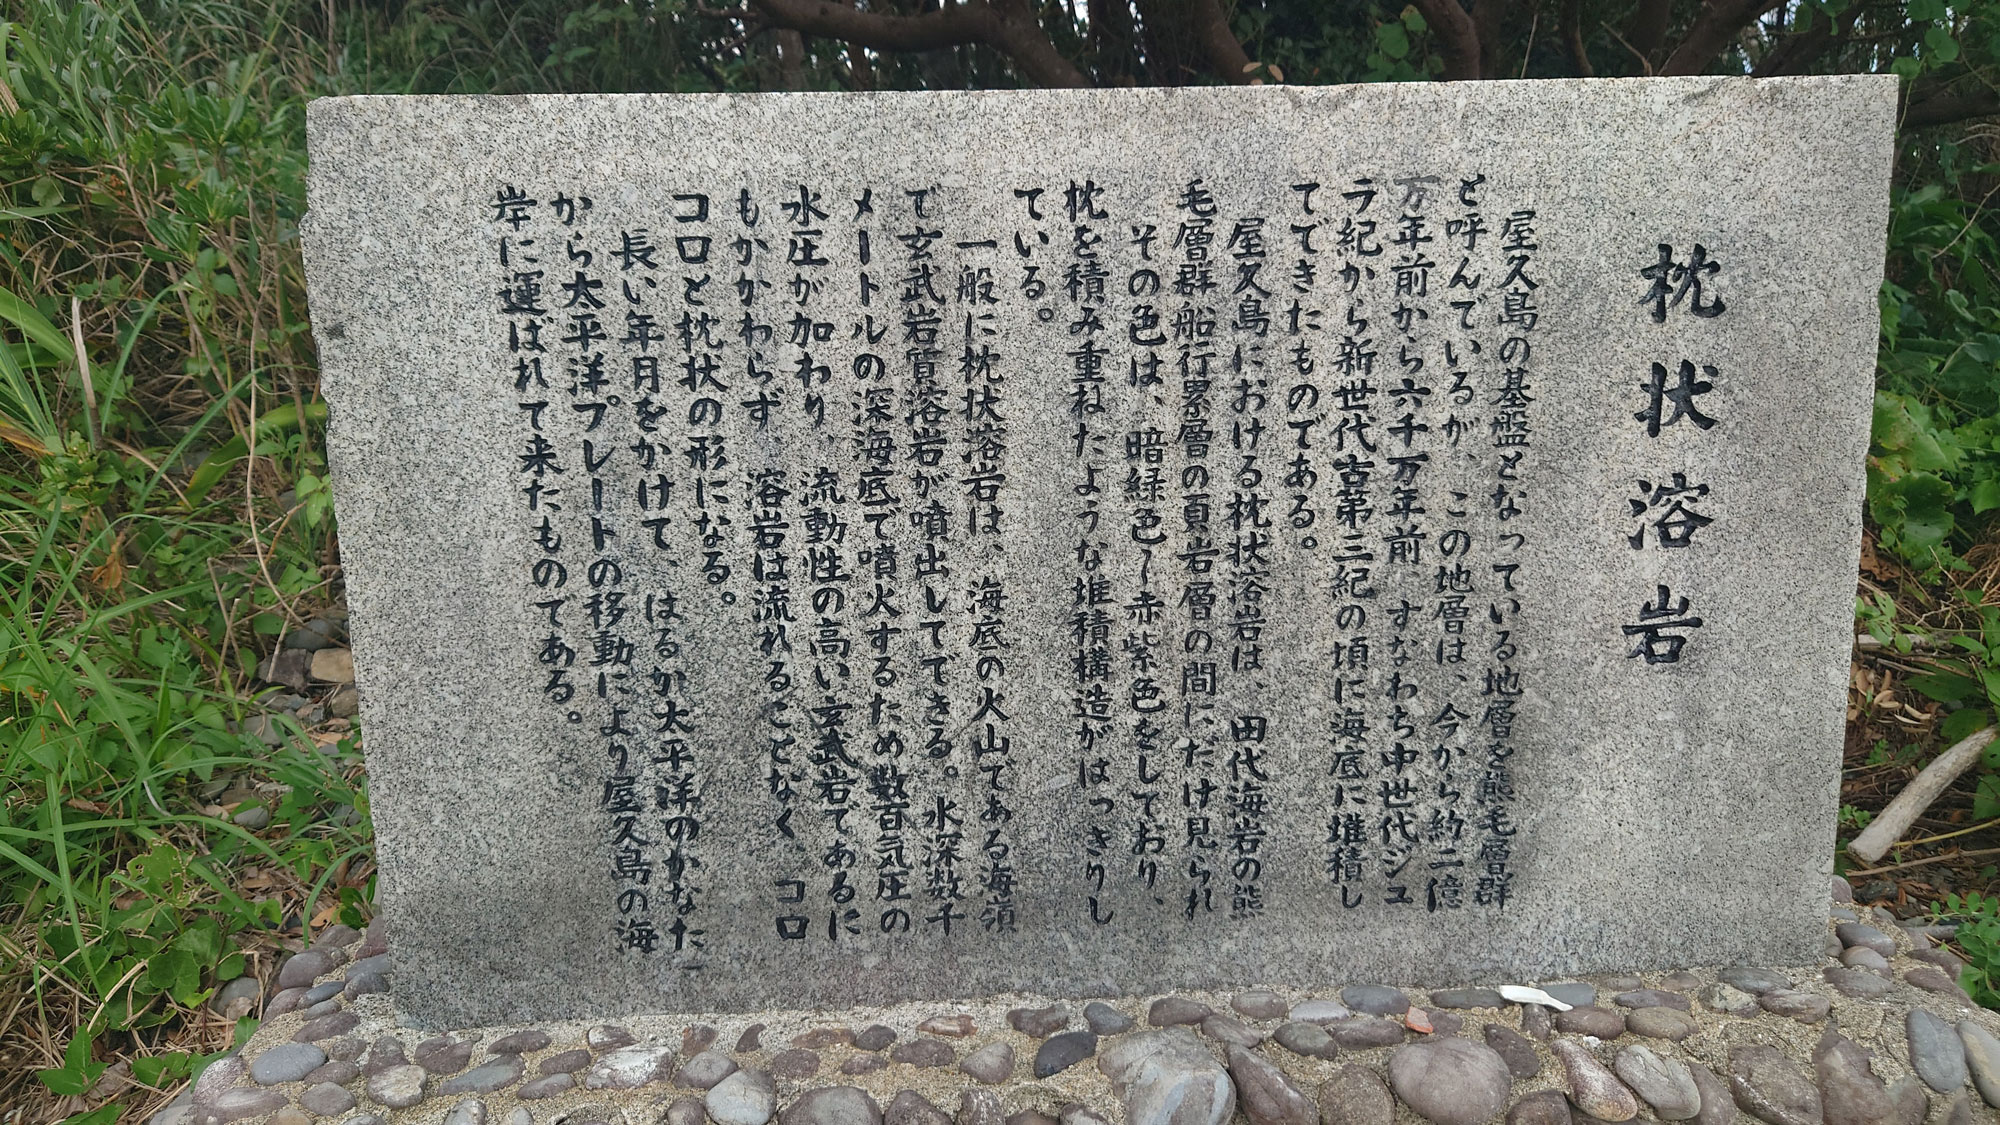 枕状溶岩
屋久島の基盤となっている地層を熊毛層群
と呼んでいるが、この地層は、今から約二億
万年前から六千万年前、すなわち中世代ジュ
ラ紀から新世代古第三紀の頃に海底に堆積し
てできたものである。
屋久島における枕状溶岩は、田代海岩の熊
毛層群船行累層の頁岩層の間にだけ見られ
その色は、暗緑色〜赤紫色をしており、
枕を積み重ねたような堆積構造がはっきりし
ている。
一般に枕状溶岩は、海底の火山である海嶺
で玄武岩質溶岩が噴出してできる。水深数千
メートルの深海底で噴火するため数百気圧の
水圧が加わり、流動性の高い玄武岩であるに
もかかわらず、溶岩は流れることなく、コロ
コロと枕状の形になる。
長い年月をかけて、はるか太平洋のかなた
から太平洋プレートの移動により屋久島の海
岸に運ばれて来たものである。